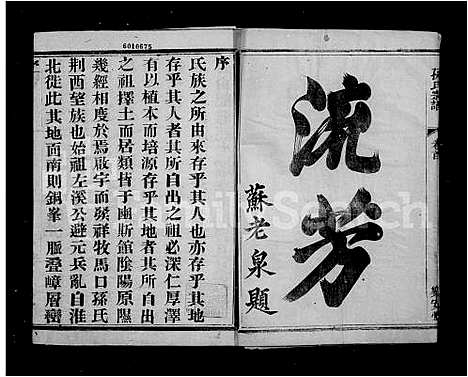 孫氏宗譜 卷首
流芳
蘇老泉題
6010675
序
氏族之所由來存乎其人也亦存乎其地
存乎其人者其所自出之祖必深仁厚澤
有以植本而培源存乎其地者其所自出
之祖擇土而居類皆于豳斯館陰陽原隰
幾經相度於焉啟宇而發祥牧馬口孫氏
荆西望族也始祖左溪公避元兵亂自淮
北徙此其地面南則銅峯一脈疊嶂層巒